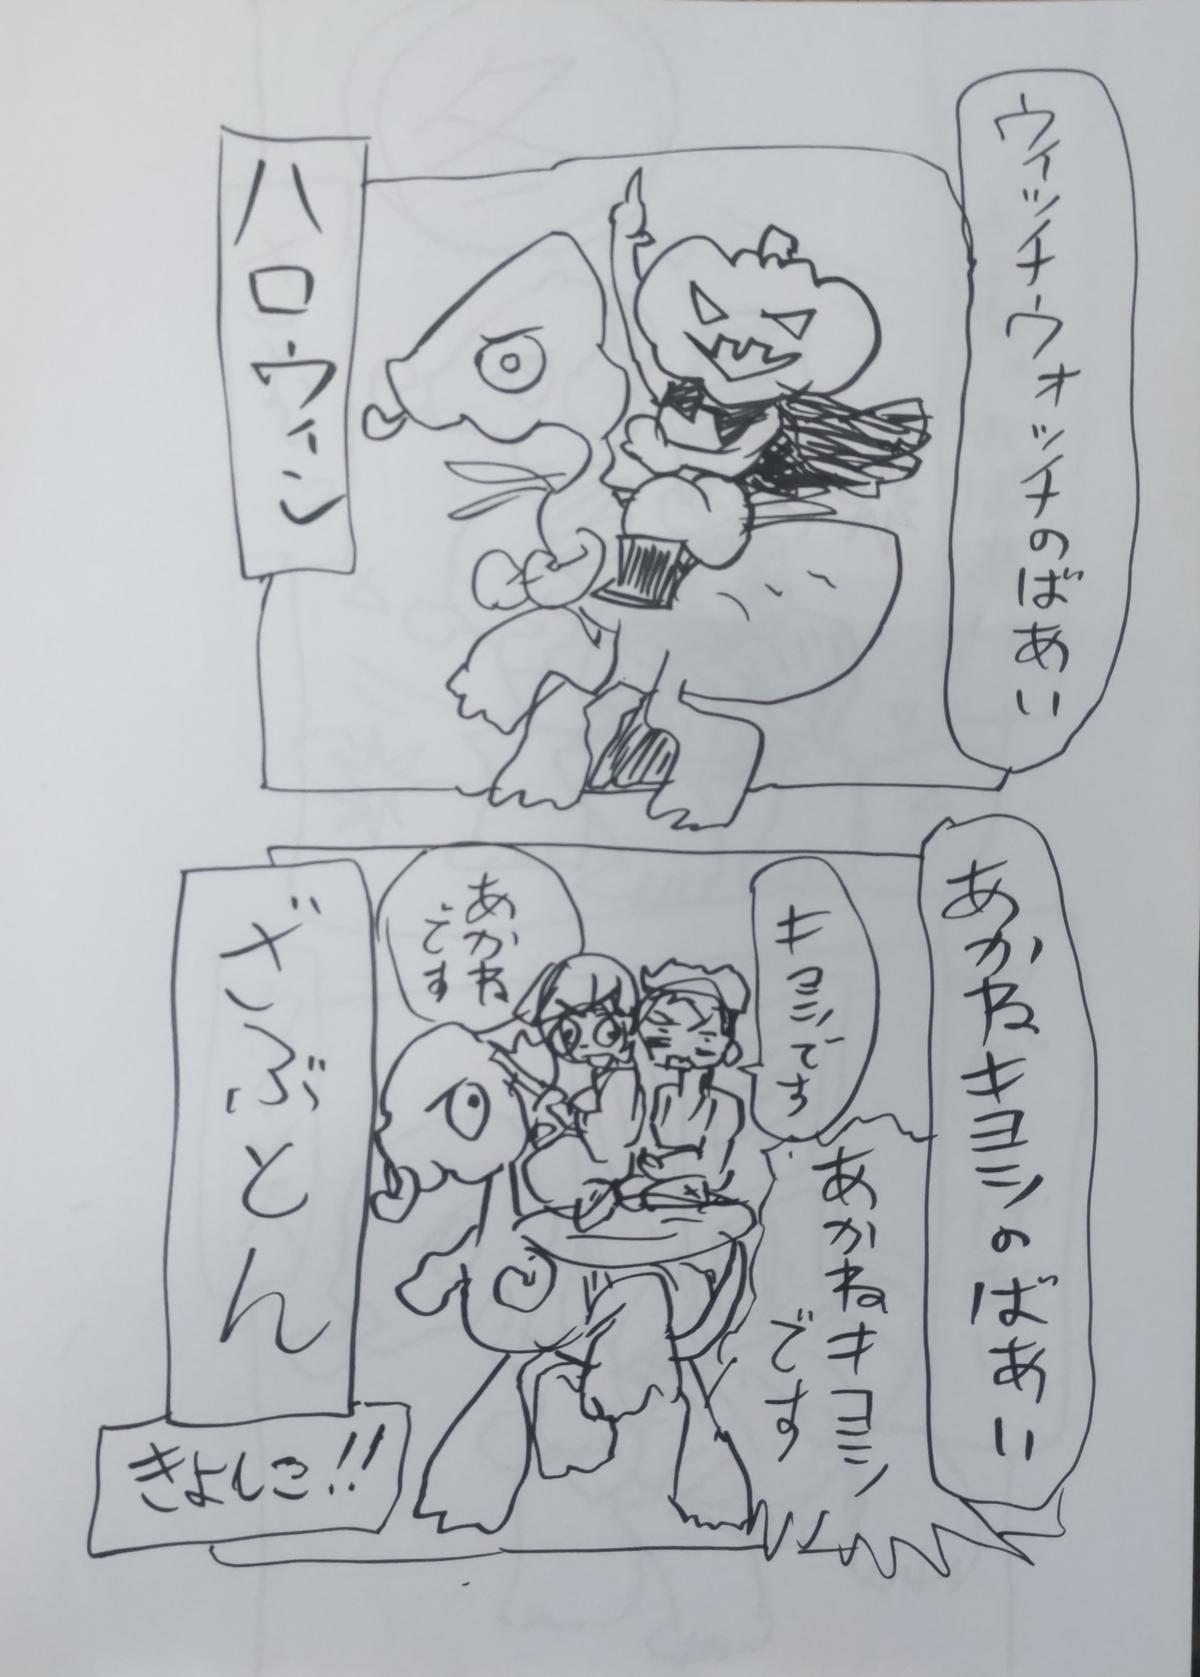 ウィッチウォッチのばあい
ハロウィン
あかねキヨシのばあい
キヨシです
あかねキヨシ
です
あかね
です
ざぶとん
きよしこ!!